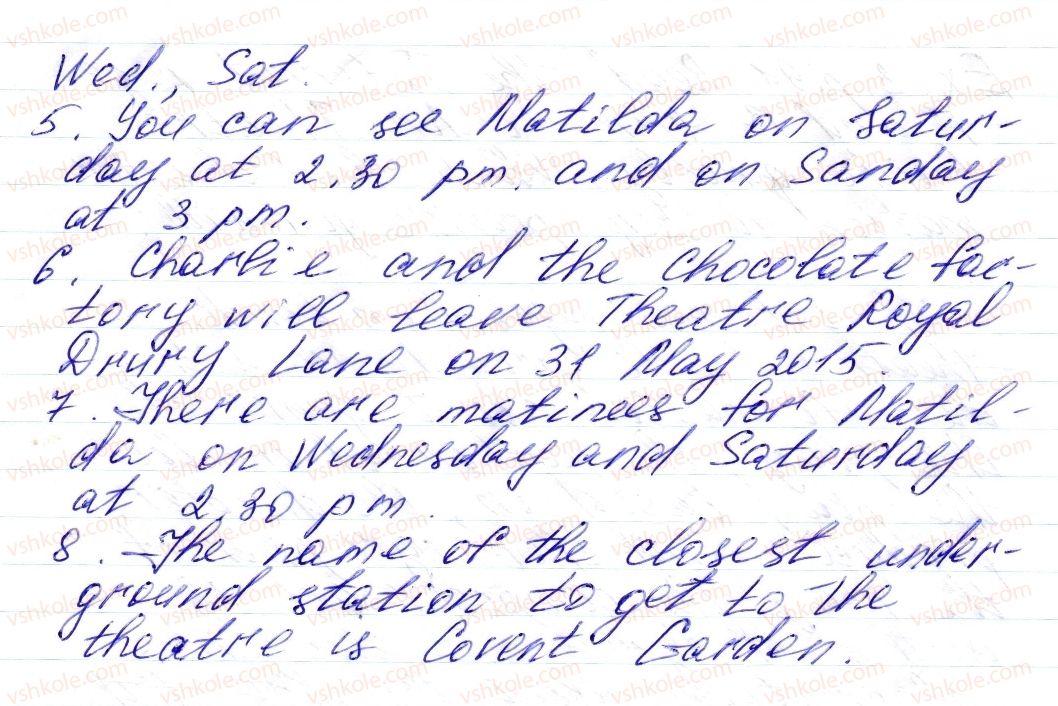 Wed., Sat.
5. You can see Matilda on Satur-
day at 2.30 pm. and on Sanday
at 3 pm.
6. Charlie and the Chocolate fac-
tory will leave Theatre Royal
Drury Lane on 31 May 2015.
7. There are matinees for Matil-
da on Wednesday and Saturday
at 2.30 pm.
8. The name of the closest under-
ground station to get to the
theatre is Covent Garden.